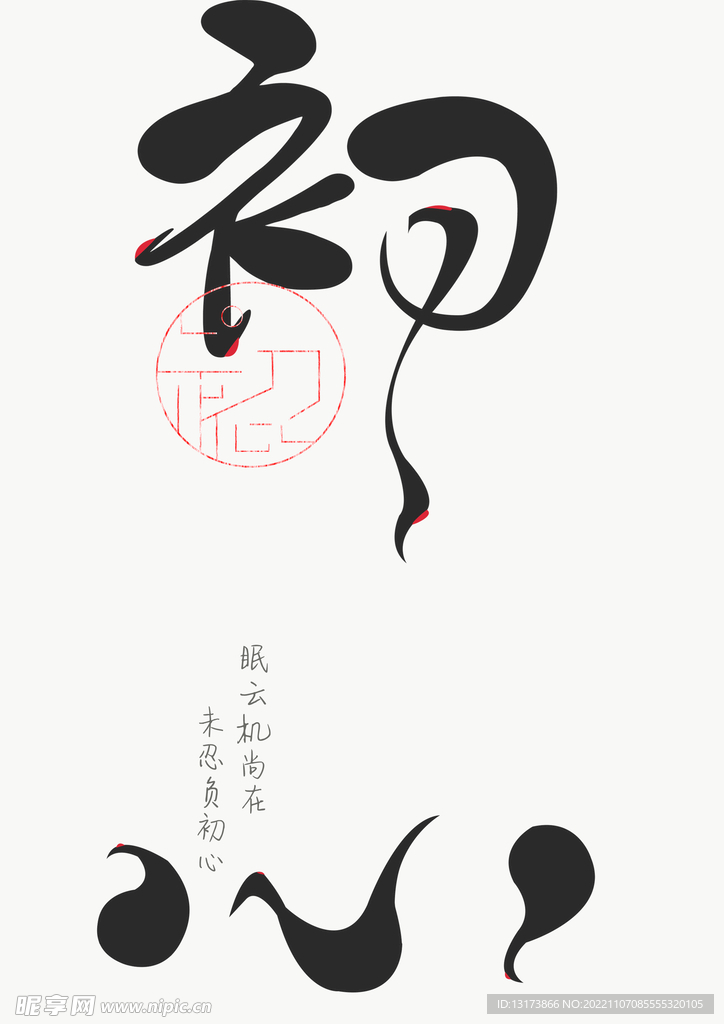 初
眠云机尚在
未忍负初心
心
昵享网 www.nipic.cn
ID:13173866 NO:20221107085555320105